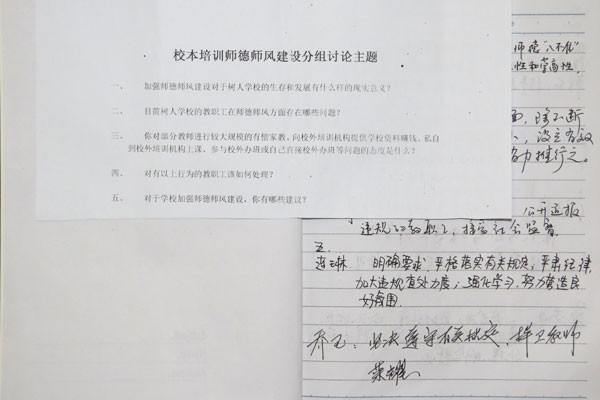 校本培训师德师风建设分组讨论主题
一、 加强师德师风建设对于树人学校的生存和发展有什么样的现实意义?
二、 目前树人学校的教职工在师德师风方面存在哪些问题?
三、 你对部分教师进行较大规模的有偿家教、向校外培训机构提供学校资料赚钱、私自
到校外培训机构上课、参与校外办班或自己直接校外办班等问题的态度是什么?
四、 对有以上行为的教职工该如何处理?
五、 对于学校加强师德师风建设，你有哪些建议?
师德"八不准"
性和崇高性,
面,
不断
力推行之。
公开通报
违规的教职工, 接受社会监督。
五.
明确要求, 严格落实有关规定, 严肃纪律,
加大违规查处力度; 强化学习, 努力营造良
好氛围.
教师
荣耀.